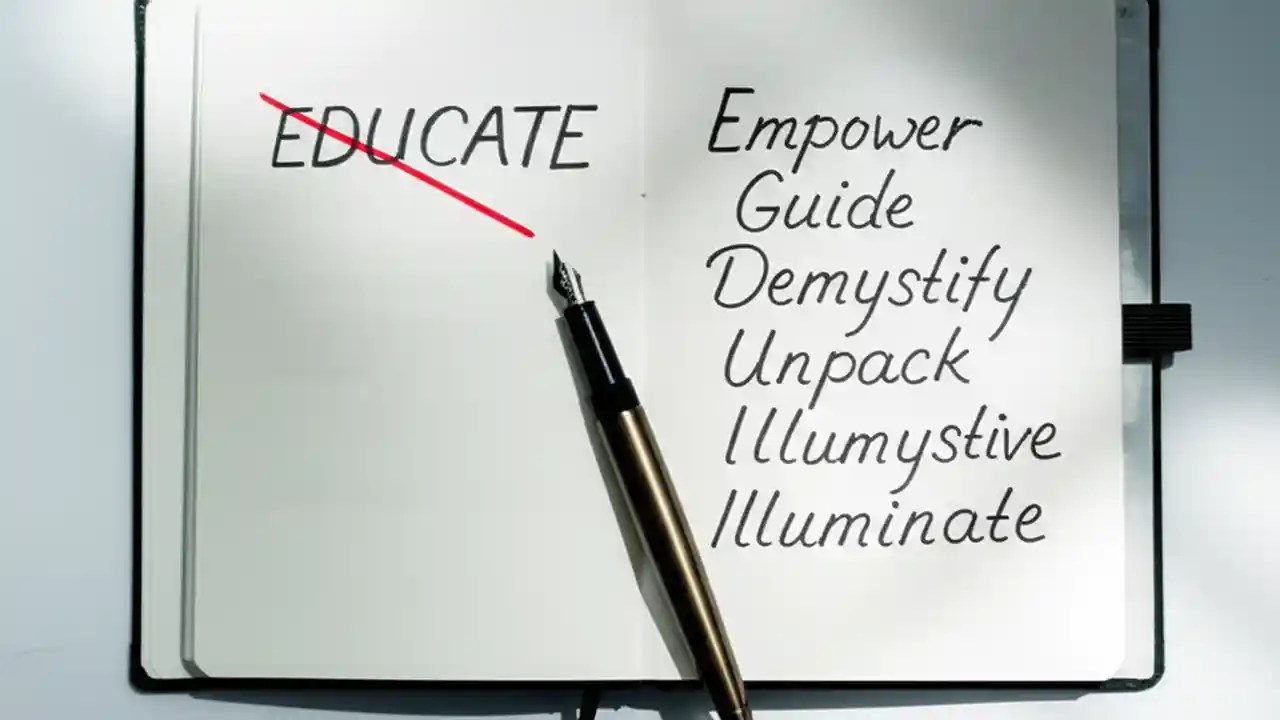 EDUCATE
Empower
Guide
Demystify
Unpack
Illumystive
Illuminate